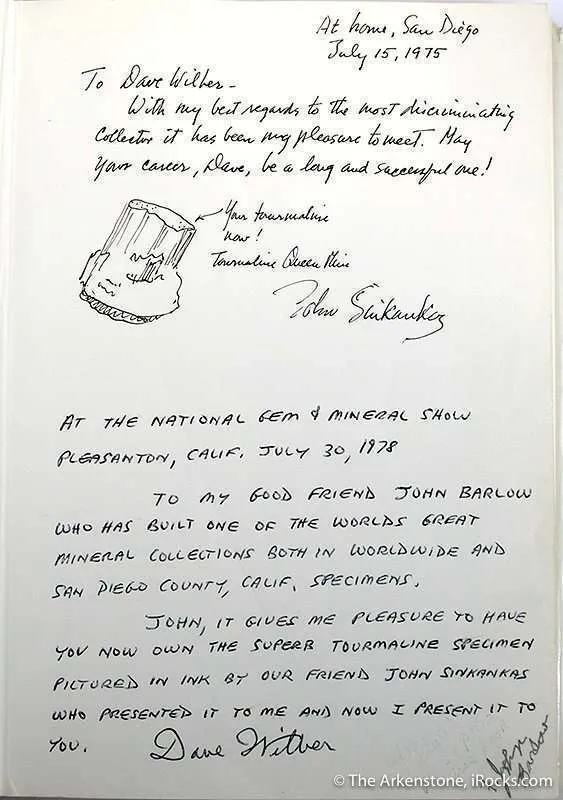 At home, San Diego
July 15, 1975
To Dave Wilber –
With my best regards to the most discriminating
collector it has been my pleasure to meet. May
your career, Dave, be a long and successful one!
Your tourmaline
now!
Tourmaline Queen Mine
John Sinkankas
AT THE NATIONAL GEM & MINERAL SHOW
PLEASANTON, CALIF. JULY 30, 1978
TO MY GOOD FRIEND JOHN BARLOW
WHO HAS BUILT ONE OF THE WORLDS GREAT
MINERAL COLLECTIONS BOTH IN WORLDWIDE AND
SAN DIEGO COUNTY, CALIF. SPECIMENS.
JOHN, IT GIVES ME PLEASURE TO HAVE
YOU NOW OWN THE SUPERB TOURMALINE SPECIMEN
PICTURED IN INK BY OUR FRIEND JOHN SINKANKAS
WHO PRESENTED IT TO ME AND NOW I PRESENT IT TO
YOU.
Dave Wilber
John Barlow
© The Arkenstone, iRocks.com